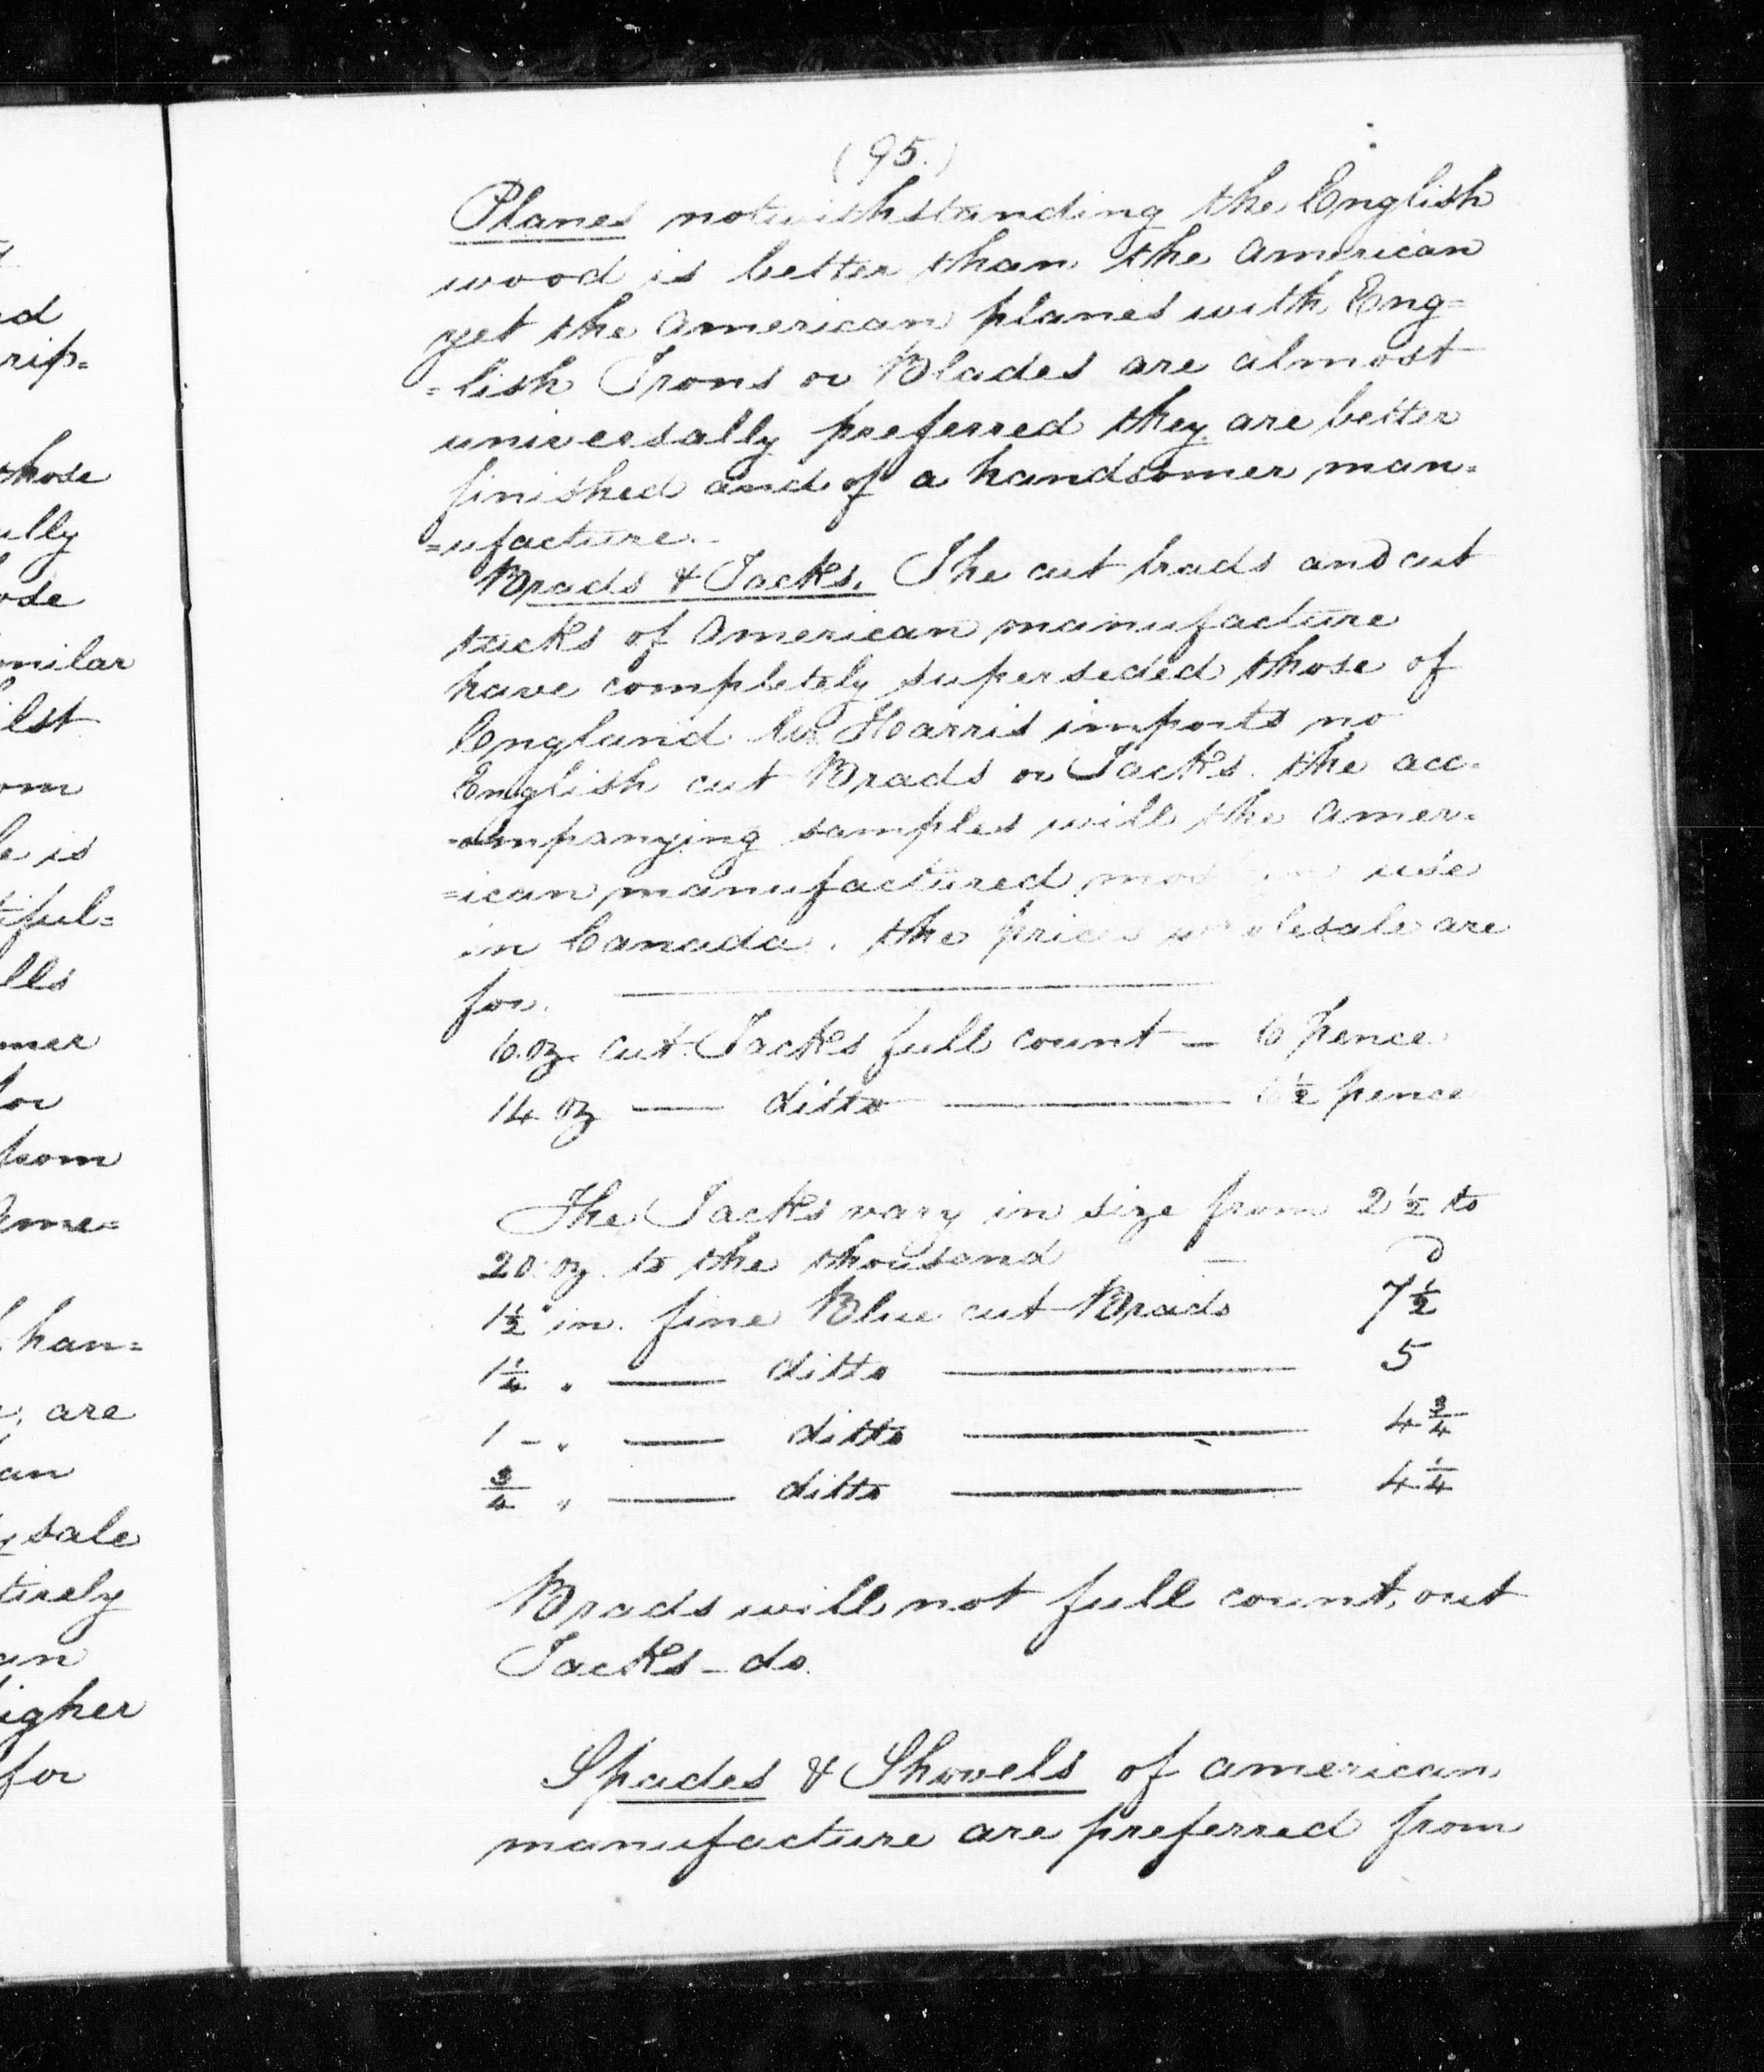 (95.)
Planes notwithstanding the English
wood is better than the American
yet the American planes with Eng=
=lish Irons or Blades are almost
universally preferred they are better
finished and of a handsomer man=
=ufacture.
Brads & Tacks. The cut brads and cut
tacks of American manufacture
have completely superseded those of
England Mr Harris imports no
English cut Brads or Tacks. the acc=
=ompanying samples will the Amer=
=ican manufactured use
in Canada. the prices wholesale are
for.
6 oz cut Tacks full count — 6 pence
14 oz — ditto — ½ pence
The Tacks vary in size from 2½ to
20 oz. to the thousand — d
1½ in. fine Blue cut Brads 7½
1¼ " — ditto — 5
1 - " — ditto — 4¾
¾ " — ditto — 4¼
Brads will not full count, out
Tacks - do.
Spades & Shovels of american
manufacture are preferred from
ed
rip=
those
ully
ose
milar
ilst
om
le is
tiful=
lls
mer
for
from
Ame=
han=
are
an
sale
tirely
an
igher
for